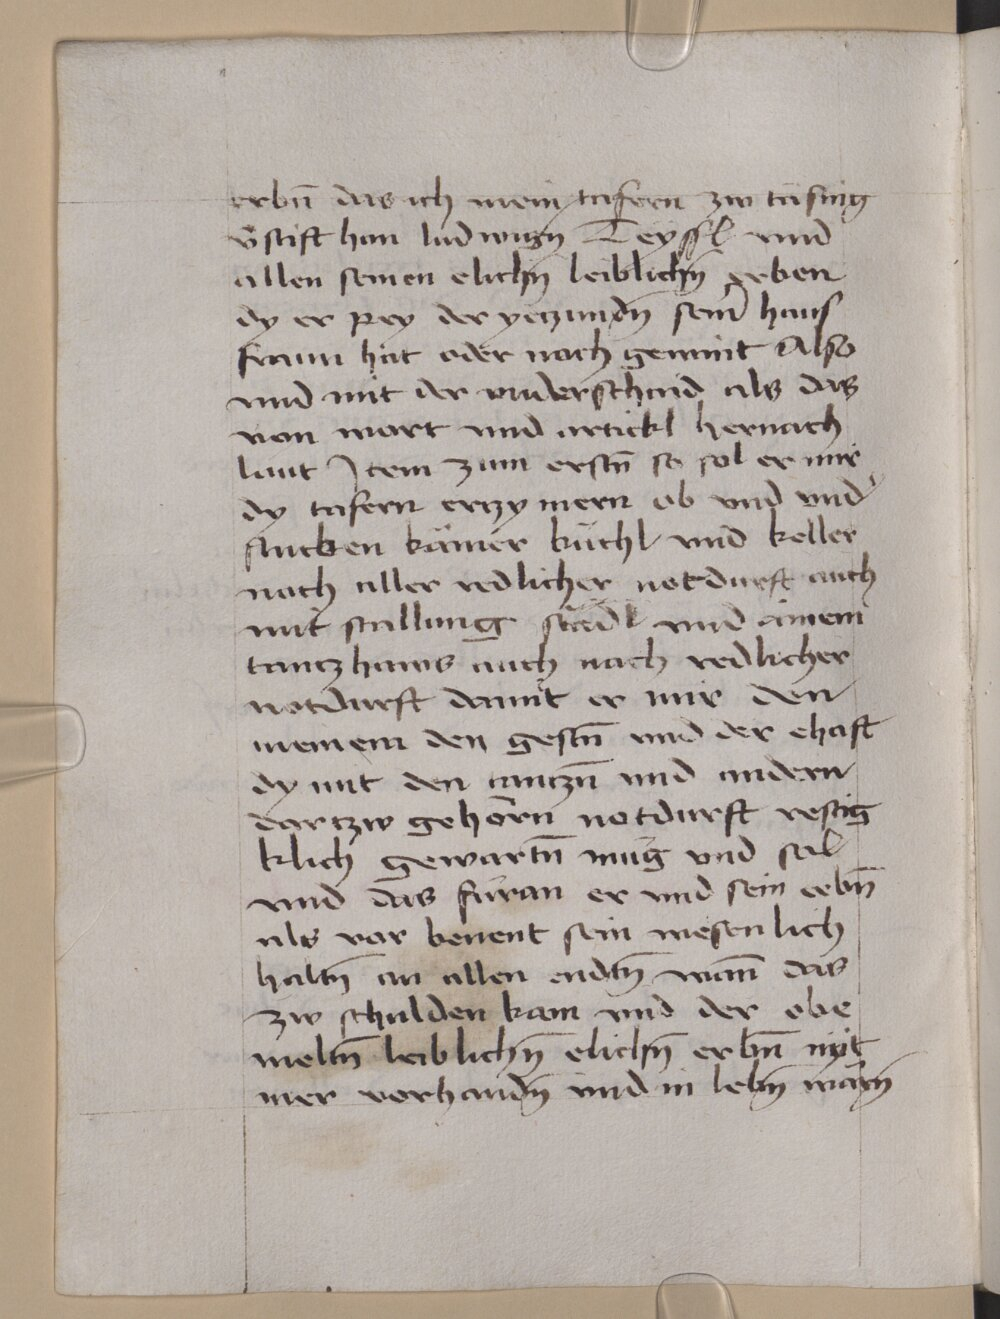 erbn̄ das ich mein tafern zw täsing
v̄stift han ludwign̄ Teyssl vnd
allen seinen elichn̄ leiblichn̄ erben
dy er pey der yetzundn̄ seinr haus
fraun hat oder noch gewint Also
vnd mit der vnderschaid als das
von wort vnd artickl hernach
laut Item zum erstn̄ so sol er mir
dy tafern erczymern ob vnd vnd̕
stucken kamer kuchl vnd keller
nach aller redlicher notdurft auch
mit stallung städl vnd ainem
tanczhaws auch nach redlicher
notdurft damit er mir den
meinem den gestn̄ vnd der ehaft
dy mit den tanczn̄ vnd andern
dartzw gehörn̄ notdurft
klich gewartn̄ mug vnd sol
vnd das füran er vnd sein erbn̄
als vor benent sein wesenlich
haltn̄ an allen endtn̄ wan̄ das
zw schulden kam vnd der obe
meltn̄ leiblichn̄ elichn̄ erbn̄ nyt
mer vorhandn̄ vnd in lebn̄ wärn̄